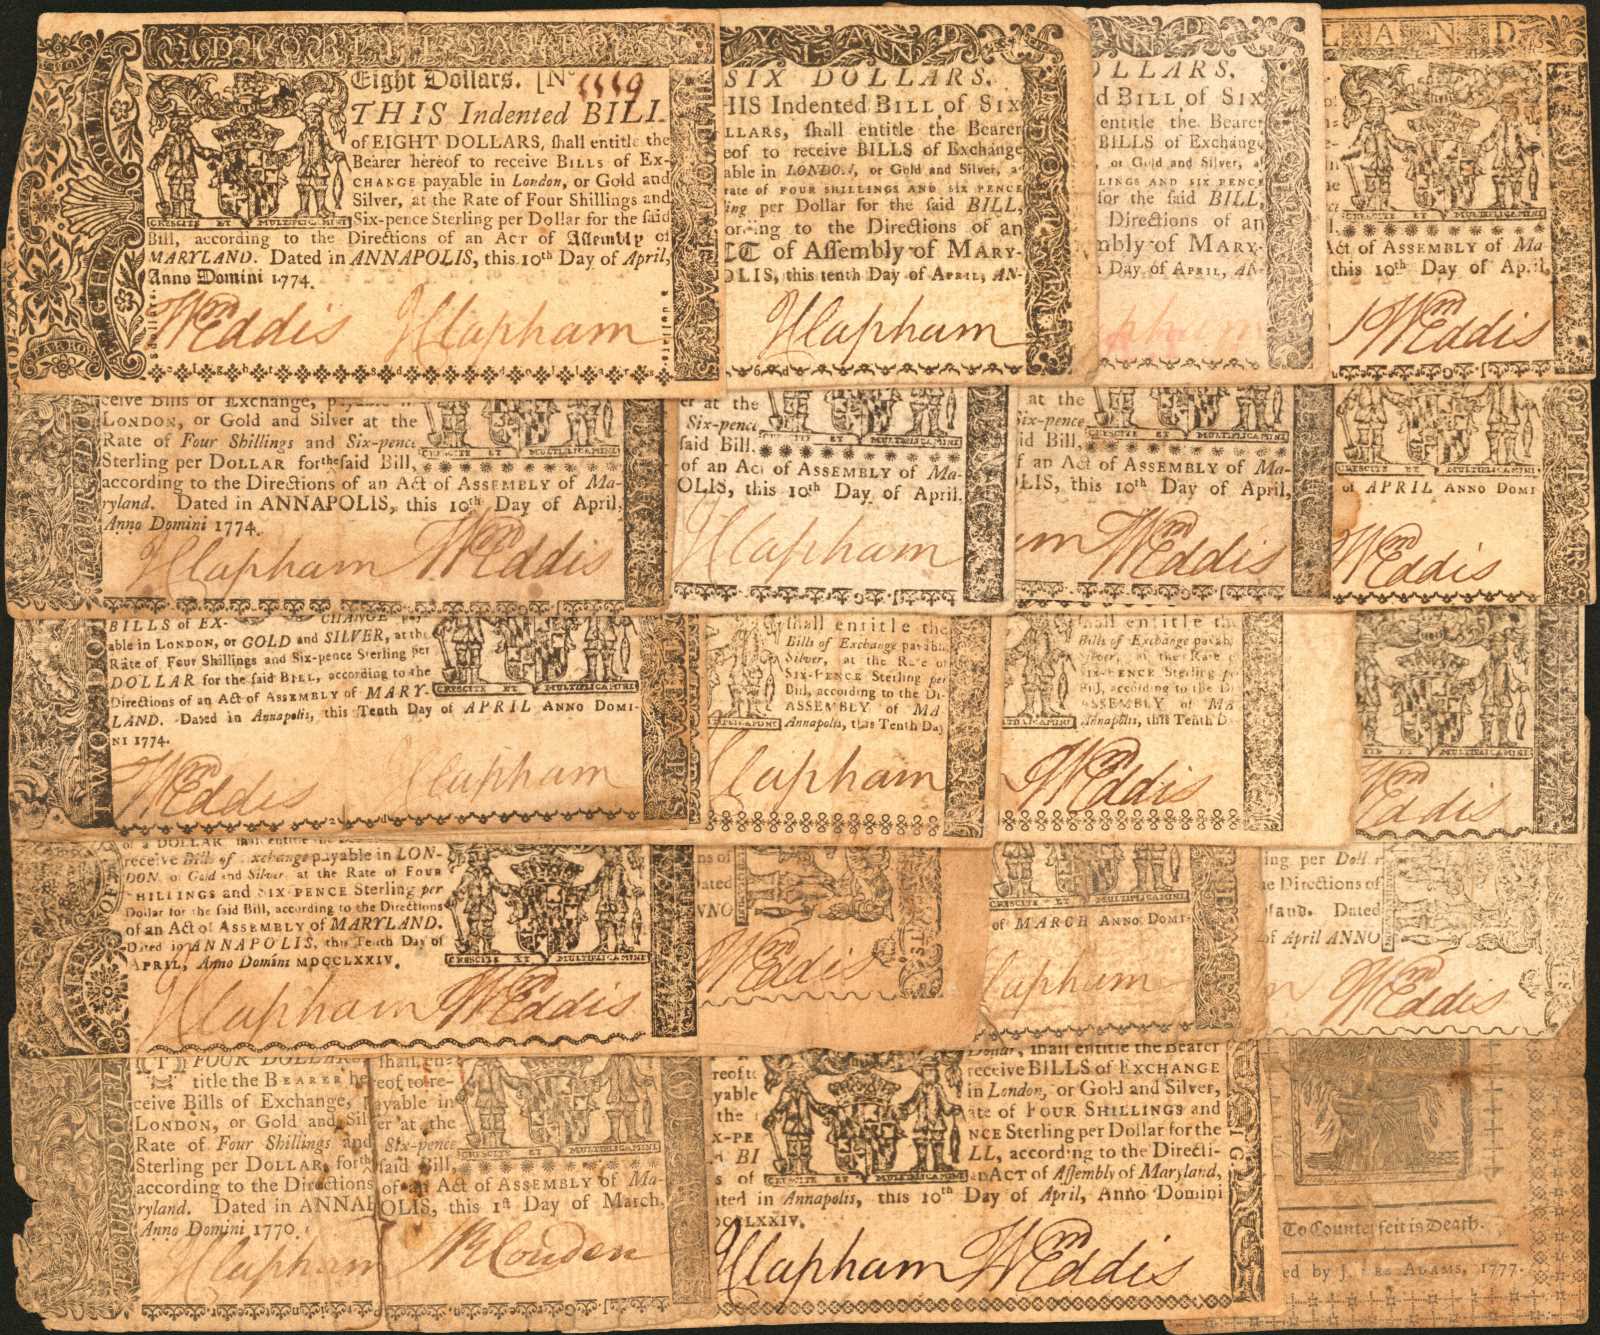 Eight Dollars. [No
THIS Indented BILL
of EIGHT DOLLARS, shall entitle the
Bearer hereof to receive BILLS of Ex-
CHANGE payable in London, or Gold and
Silver, at the Rate of Four Shillings and
CRESCITE ET MULTIPLICAMINI
Six-pence Sterling per Dollar for the said
Bill, according to the Directions of an Act of Assembly of
MARYLAND. Dated in ANNAPOLIS, this 10th Day of April,
Anno Domini 1774.
Wm Eddis JClapham
YLAND
SIX DOLLARS.
HIS Indented BILL of SIX
LLARS, shall entitle the Bearer
eof to receive BILLS of Exchange
able in LONDON, or Gold and Silver, a
rate of FOUR SHILLINGS AND SIX PENCE
ing per Dollar for the said BILL,
ording to the Directions of an
CT of Assembly of MARY-
OLIS, this tenth Day of APRIL, AN-
JClapham
OLLARS.
d BILL of SIX
entitle the Bearer
BILLS of Exchange
or Gold and Silver, a
LINGS AND SIX PENCE
for the said BILL,
Directions of an
mbly of MARY-
Day of APRIL, AN-
pham
LAND
CRESCITE ET MULTIPLICAMINI
Act of ASSEMBLY of Ma-
this 10th Day of April,
Wm Eddis
ceive Bills of Exchange,
LONDON, or Gold and Silver at the
Rate of Four Shillings and Six-pence
Sterling per DOLLAR for the said Bill,
according to the Directions of an Act of ASSEMBLY of Ma-
ryland. Dated in ANNAPOLIS, this 10th Day of April,
Anno Domini 1774.
JClapham Wm Eddis
er at the
Six-pence
said Bill,
CRESCITE ET MULTIPLICAMINI
of an Act of ASSEMBLY of Ma-
OLIS, this 10th Day of April.
JClapham
at the
Six-pence
id Bill,
CRESCITE ET MULTIPLICAMINI
f an Act of ASSEMBLY of Ma-
LIS, this 10th Day of April,
m Wm Eddis
CRESCITE ET MULTIPLICAMINI
of APRIL ANNO DOMI
Wm Eddis
BILLS of EX-
CHANGE pay-
able in LONDON, or GOLD and SILVER, at the
Rate of Four Shillings and Six-pence Sterling per
DOLLAR for the said BILL, according to the
Directions of an Act of ASSEMBLY of MARY-
CRESCITE ET MULTIPLICAMINI
LAND. Dated in Annapolis, this Tenth Day of APRIL ANNO DOMI-
NI 1774.
Wm Eddis JClapham
shall entitle the
Bills of Exchange payable
Silver, at the Rate of
SIX-PENCE Sterling per
Bill, according to the Di-
ASSEMBLY of MA
Annapolis, this Tenth Day
JClapham
shall entitle th
Bills of Exchange payab
Silver, at the Rate o
SIX-PENCE Sterling pe
Bill, according to the Di
ASSEMBLY of MA
Annapolis, this Tenth D
Wm Eddis
ET MULTIPLICAMINI
Wm Eddis
receive Bills of Exchange payable in LON-
DON or Gold and Silver at the Rate of FOUR
SHILLINGS and SIX-PENCE Sterling per
Dollar for the said Bill, according to the Directions
of an Act of ASSEMBLY of MARYLAND.
Dated in ANNAPOLIS, this Tenth Day of
CRESCITE ET MULTIPLICAMINI
APRIL, Anno Domini MDCCLXXIV.
JClapham Wm Eddis
ns of
Dated
NNO
Wm Eddis
of MARCH ANNO DOMI-
lapham
ing per Dollar
he Directions of
land. Dated
of April ANNO
Wm Eddis
FOUR DOLLARS
title the BEARER he
ceive Bills of Exchange,
LONDON, or Gold and Sil
Rate of Four Shillings and
Sterling per DOLLAR, for th
according to the Directions
ryland. Dated in ANNAP
Anno Domini 1770.
JClapham
shall, en-
reof to re-
ayable in
er at the
Six-pence
said Bill,
CRESCITE ET MULTIPLICAMINI
of an Act of ASSEMBLY of Ma-
OLIS, this 1st Day of March,
RCouden
Dollar, shall entitle the Bearer
receive BILLS of EXCHANGE
in London, or Gold and Silver,
ate of FOUR SHILLINGS and
NCE Sterling per Dollar for the
LL, according to the Directi-
an ACT of Assembly of Maryland,
ted in Annapolis, this 10th Day of April, Anno Domini
DCCLXXIV.
JClapham Wm Eddis
To Counterfeit is Death.
ed by J. ADAMS, 1777.